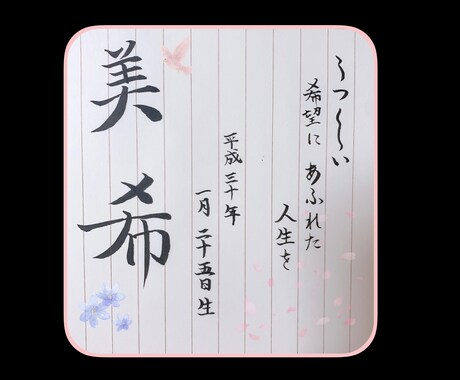 うつくしい
希望に あふれた
人生を
平成三十年
一月 二十五日生
美希